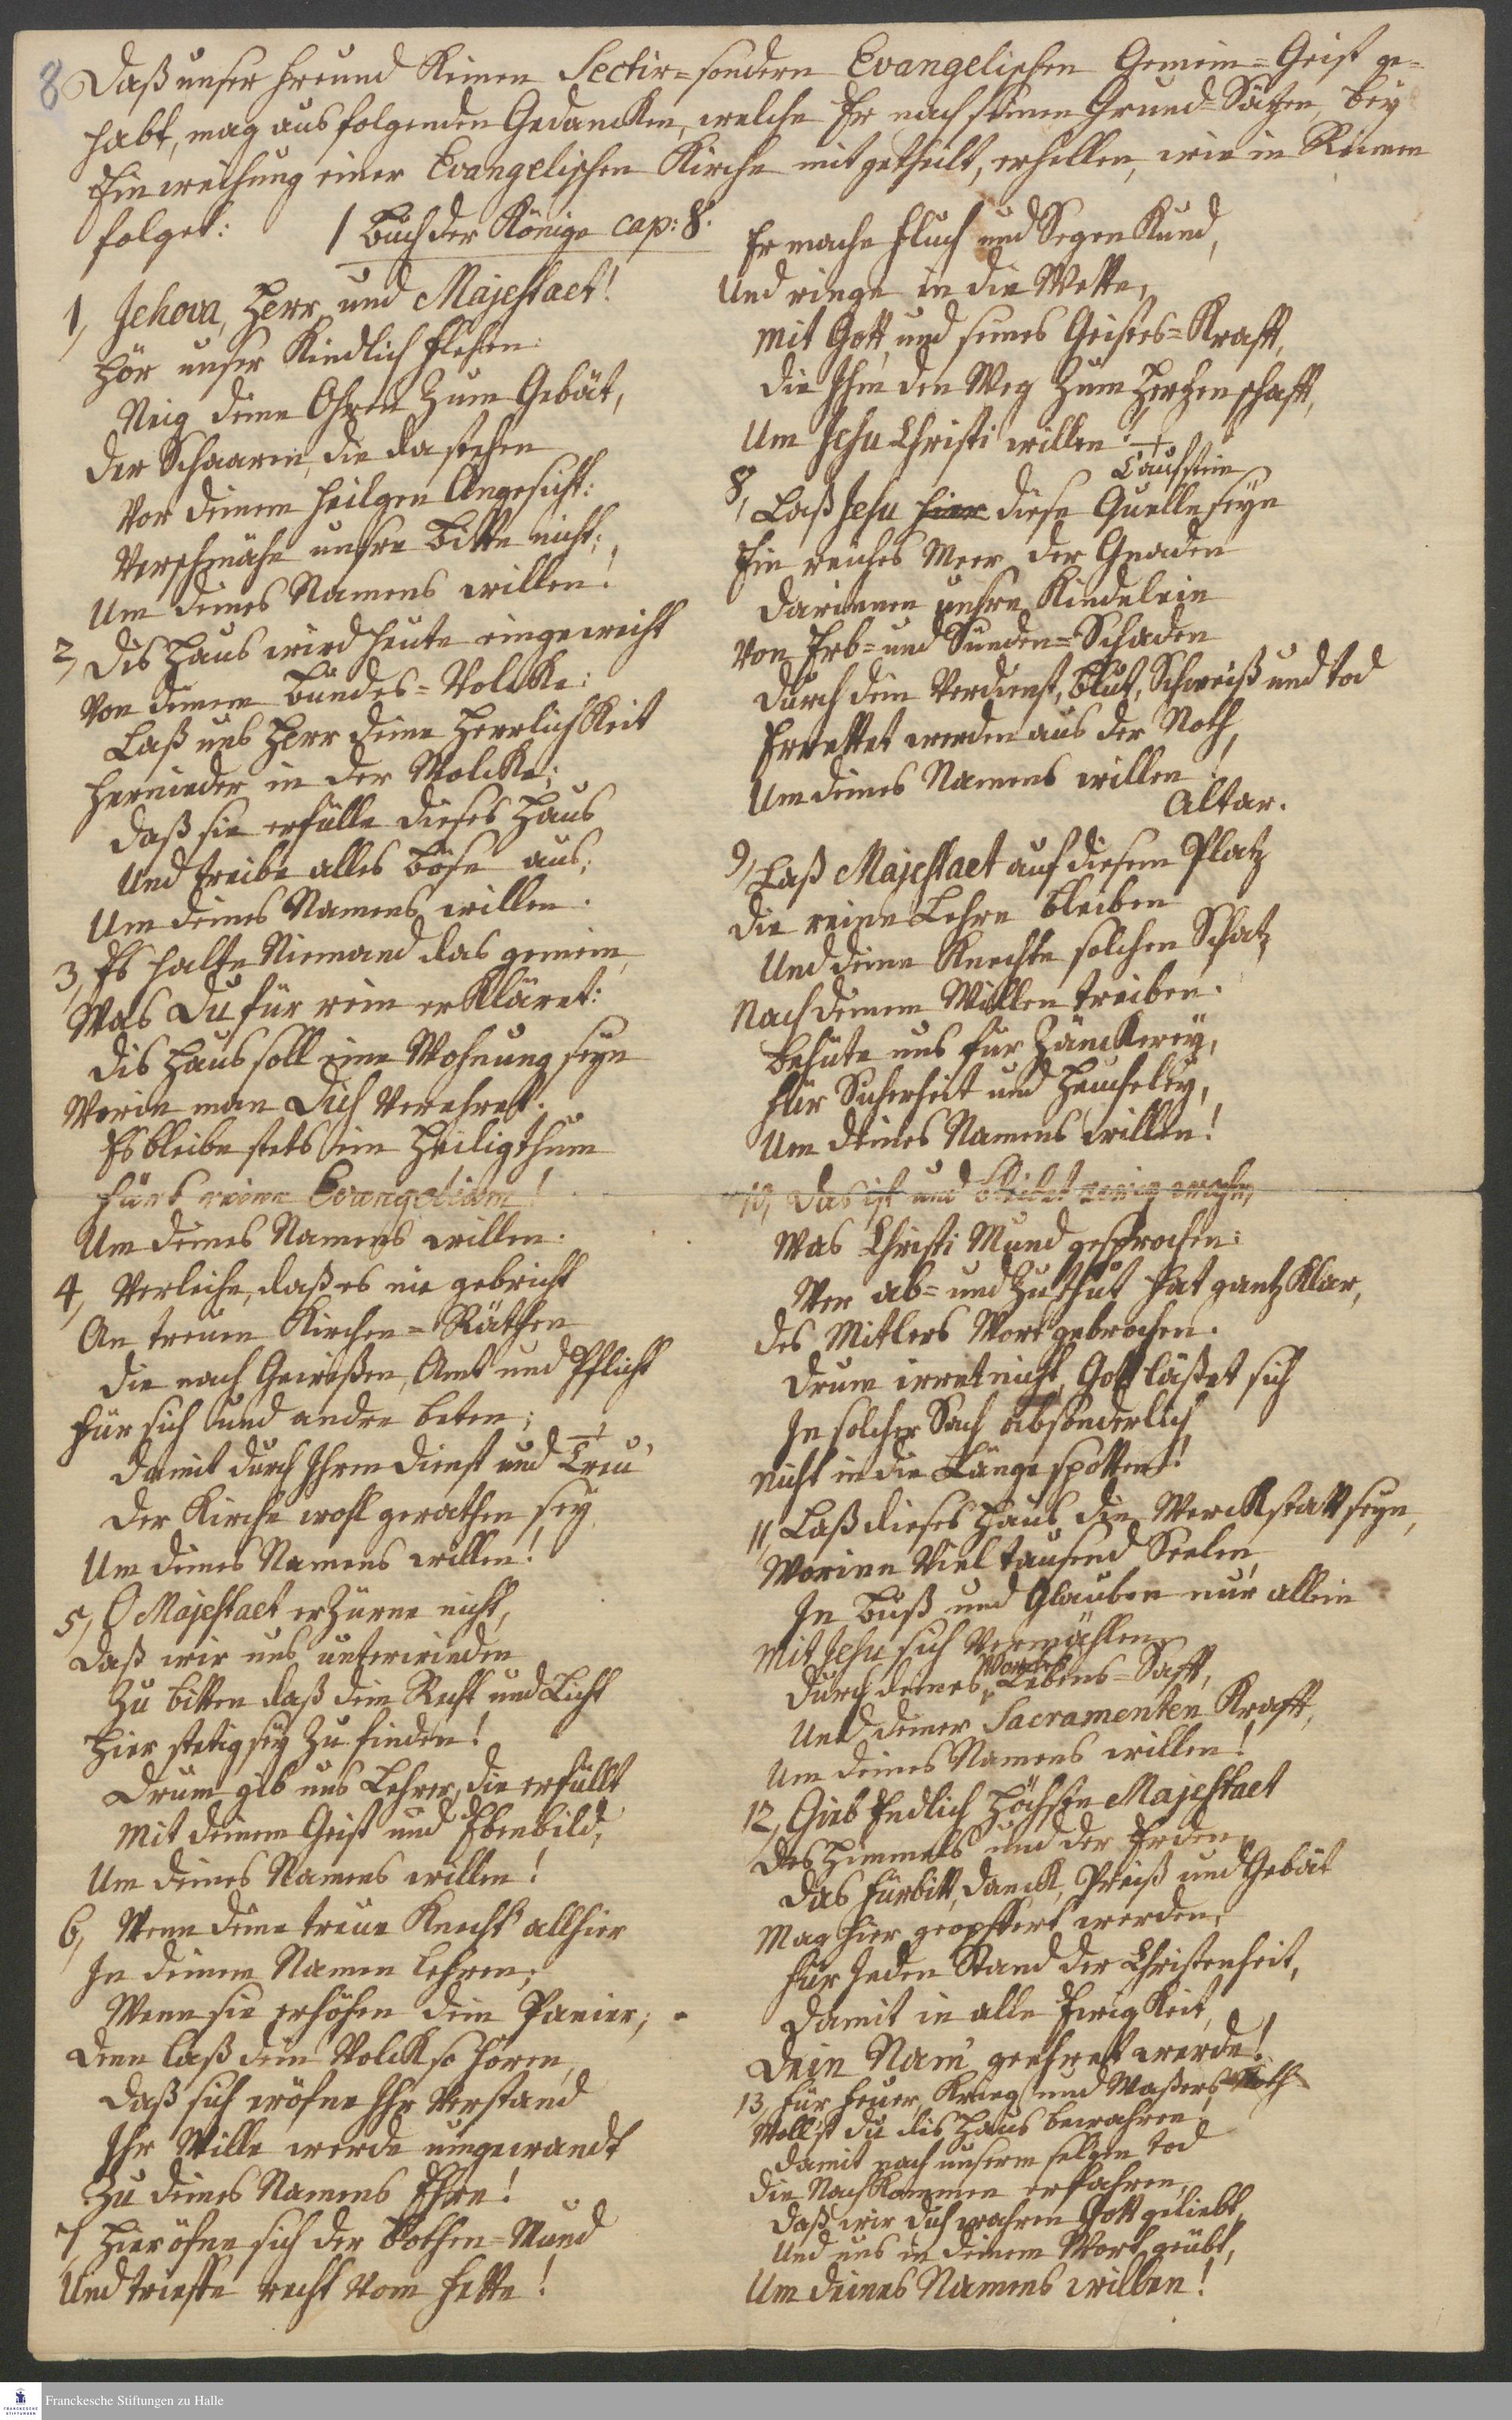 8
Daß unser Freund keinen Sectir- sondern Evangelischen Gemein-Geist ge-
habt, mag aus folgenden Gedancken, welche Er nach seinen Grund-Sätzen, bey
Einweihung einer Evangelischen Kirche mitgetheilt, erhellen, wie in Reimen
folget:
1 Buch der Könige cap: 8.
1, Jehova, Herr und Majestaet!
Hör unser Kindlich flehen:
Neig deine Ohren zum Gebät,
Der Schaaren, die da stehen
Vor deinem heilgen Angesicht:
Verschmähe unsre Bitte nicht;
Um deines Namens willen!
2, Dis Haus wird heute eingeweiht
Von deinem Bundes-Volcke:
Laß uns Herr deine Herrlichkeit
Hernieder in der Wolcke;
Daß sie erfülle dieses Haus
Und treibe alles Böse aus;
Um deines Namens willen.
3, Es halte Niemand das gemein,
Was Du für rein erkläret:
Dis Haus soll eine Wohnung seyn
Worin man Dich verehret.
Es bleibe stets ein Heiligthum
Fürs reine Evangelium!
Um deines Namens willen.
4, Verleihe, daß es nie gebricht
An treuen Kirchen-Räthen
Die nach Gewißen, Amt und Pflicht
Für sich und andre beten;
Damit durch Ihren Dienst und Treu
Der Kirche wohl gerathen sey
Um deines Namens willen!
5, O Majestaet erzürne nicht,
Daß wir uns unterwinden
Zu bitten daß dein Recht und Licht
Hier stetig sey zu finden!
Drum gib uns Lehrer, die erfüllt
Mit deinem Geist und Ebenbild,
Um deines Namens willen!
6, Wenn deine treue Knecht allhier
In deinem Namen lehren;
Wenn sie erhöhen dein Panier;
Denn laß dein Volck so hören,
Daß sich eröfne Ihr Verstand
Ihr Wille werde umgewandt
Zu deines Namens Ehre!
7, Hier öfne sich der Bothen-Mund
Und trieffe recht vom Fette!
Er mache Fluch und Segen kund,
Und ringe in die Wette,
Mit Gott, und seines Geistes-Krafft,
Die Ihm den Weg zum Hertzen schafft,
Um Jesu Christi willen!
Taufstein
8, Laß Jesu hier diese Quelle seyn
Ein reiches Meer der Gnaden
Darinnen unsre Kindelein
Von Erb- und Sünden-Schaden
Durch dein Verdienst, Blut, Schweiß und Tod
Errettet werden aus der Noth,
Um deines Namens willen!
Altar.
9, Laß Majestaet auf diesem Platz
Die reine Lehre bleiben
Und deine Knechte solchen Schatz
Nach deinem Willen treiben.
Behüte uns für Zänckerey,
Für Sicherheit und Heucheley,
Um deines Namens willen!
10, Das ist und bleibet ewig wahr,
Was Christi Mund gesprochen:
Wer ab- und zuthut hat gantz klar,
Des Mitlers Wort gebrochen.
Drum irret nicht, Gott läßet sich
In solcher Sach absonderlich
Nicht in die Länge spotten!
11, Laß dieses Haus die Werckstatt seyn,
Worinn Viel tausend Seelen,
In Buß und Glauben nur allein
Mit Jesu sich Vermählen
Wortes
Durch deines Lebens-Safft,
Und deiner Sacramenten Krafft,
Um deines Namens willen!
12, Gieb Endlich Höchste Majestaet
Des Himmels und der Erden,
Das Fürbitt, Danck, Preiß und Gebät
Mag hier geopffert werden,
Für Jeden Stand der Christenheit,
Damit in alle Ewigkeit,
Dein Nam' geehret werde!
13, Für Feuer, Krieg und Waßers-Noth
Wollst du dis Haus bewahren
Damit nach unserm selgen Tod
Die Nachkommen erfahren,
Daß wir dich wahren Gott geliebt,
Und uns in deinem Wort geübt,
Um deines Namens willen!
FRANCKESCHE STIFTUNGEN
Franckesche Stiftungen zu Halle